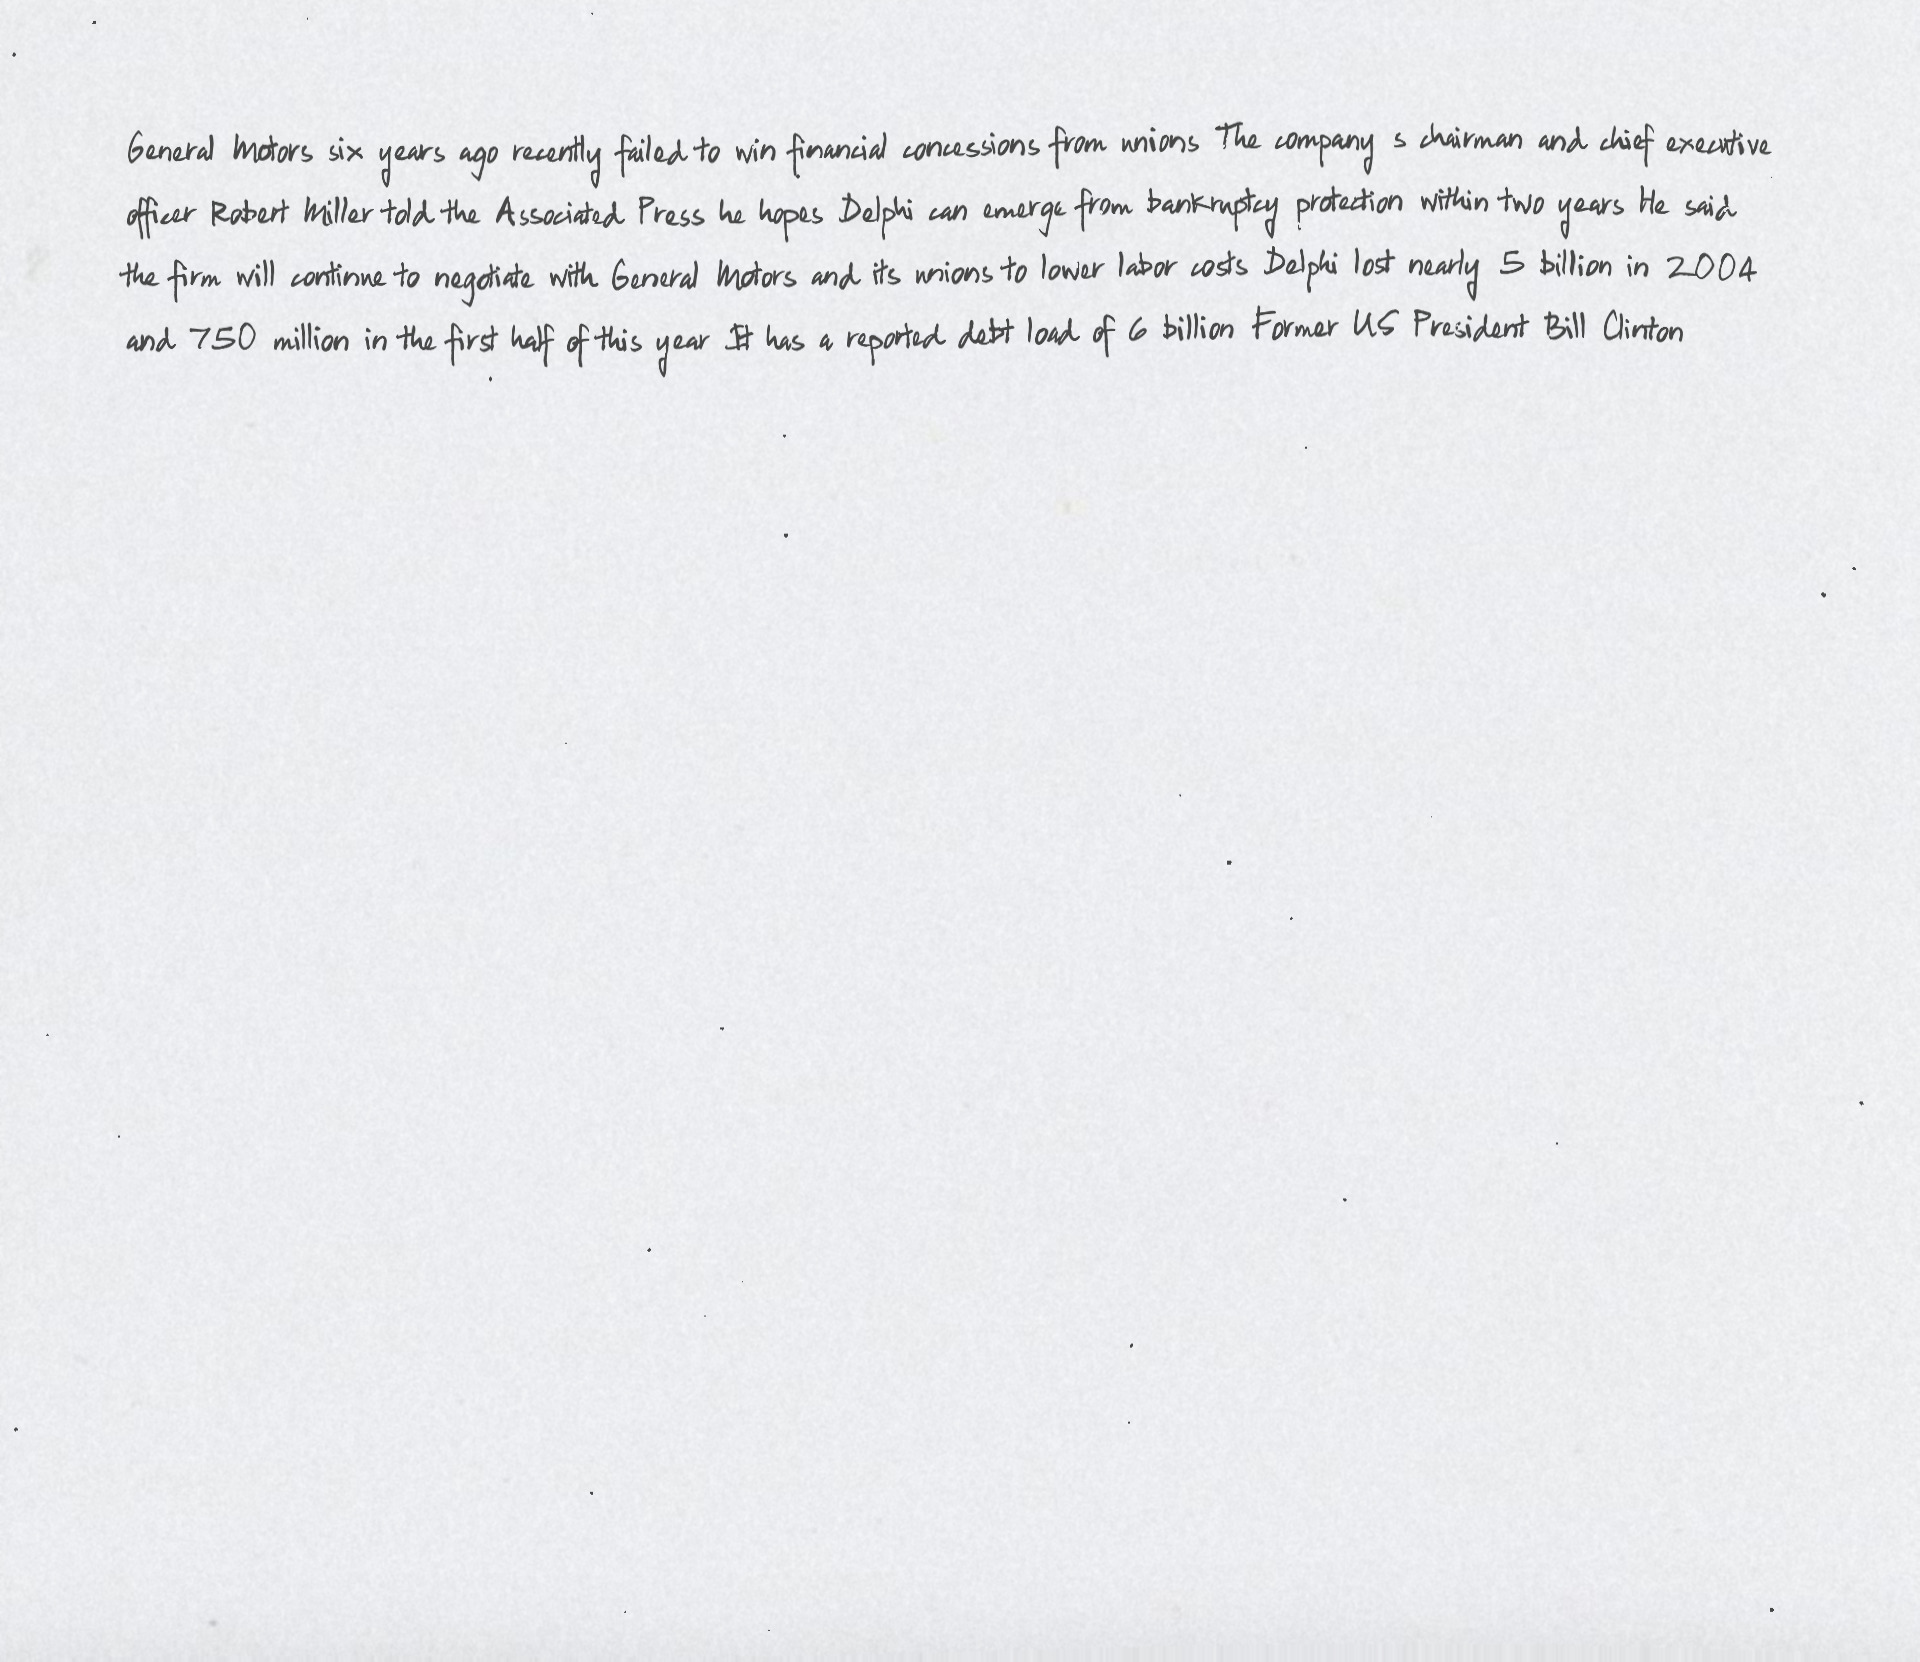 General Motors six years ago recently failed to win financial concessions from unions The company s chairman and chief executive
officer Robert Miller told the Associated Press he hopes Delphi can emerge from bankruptcy protection within two years He said
the firm will continue to negotiate with General Motors and its unions to lower labor costs Delphi lost nearly 5 billion in 2004
and 750 million in the first half of this year It has a reported debt load of 6 billion Former US President Bill Clinton